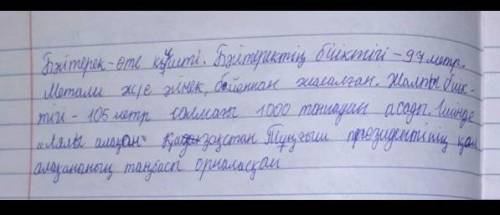 Бәйтерек - өте күшті. Бәйтеректің биіктігі - 97 метр.
Металл және әйнек, бетоннан жасалған. Жалпы биік-
тігі - 105 метр салмағы 1000 тоннадан асады. Ішінде
"Аялы алақан" Қазақстан Тұңғыш президентінің қол
алақанының таңбасы орналасқан